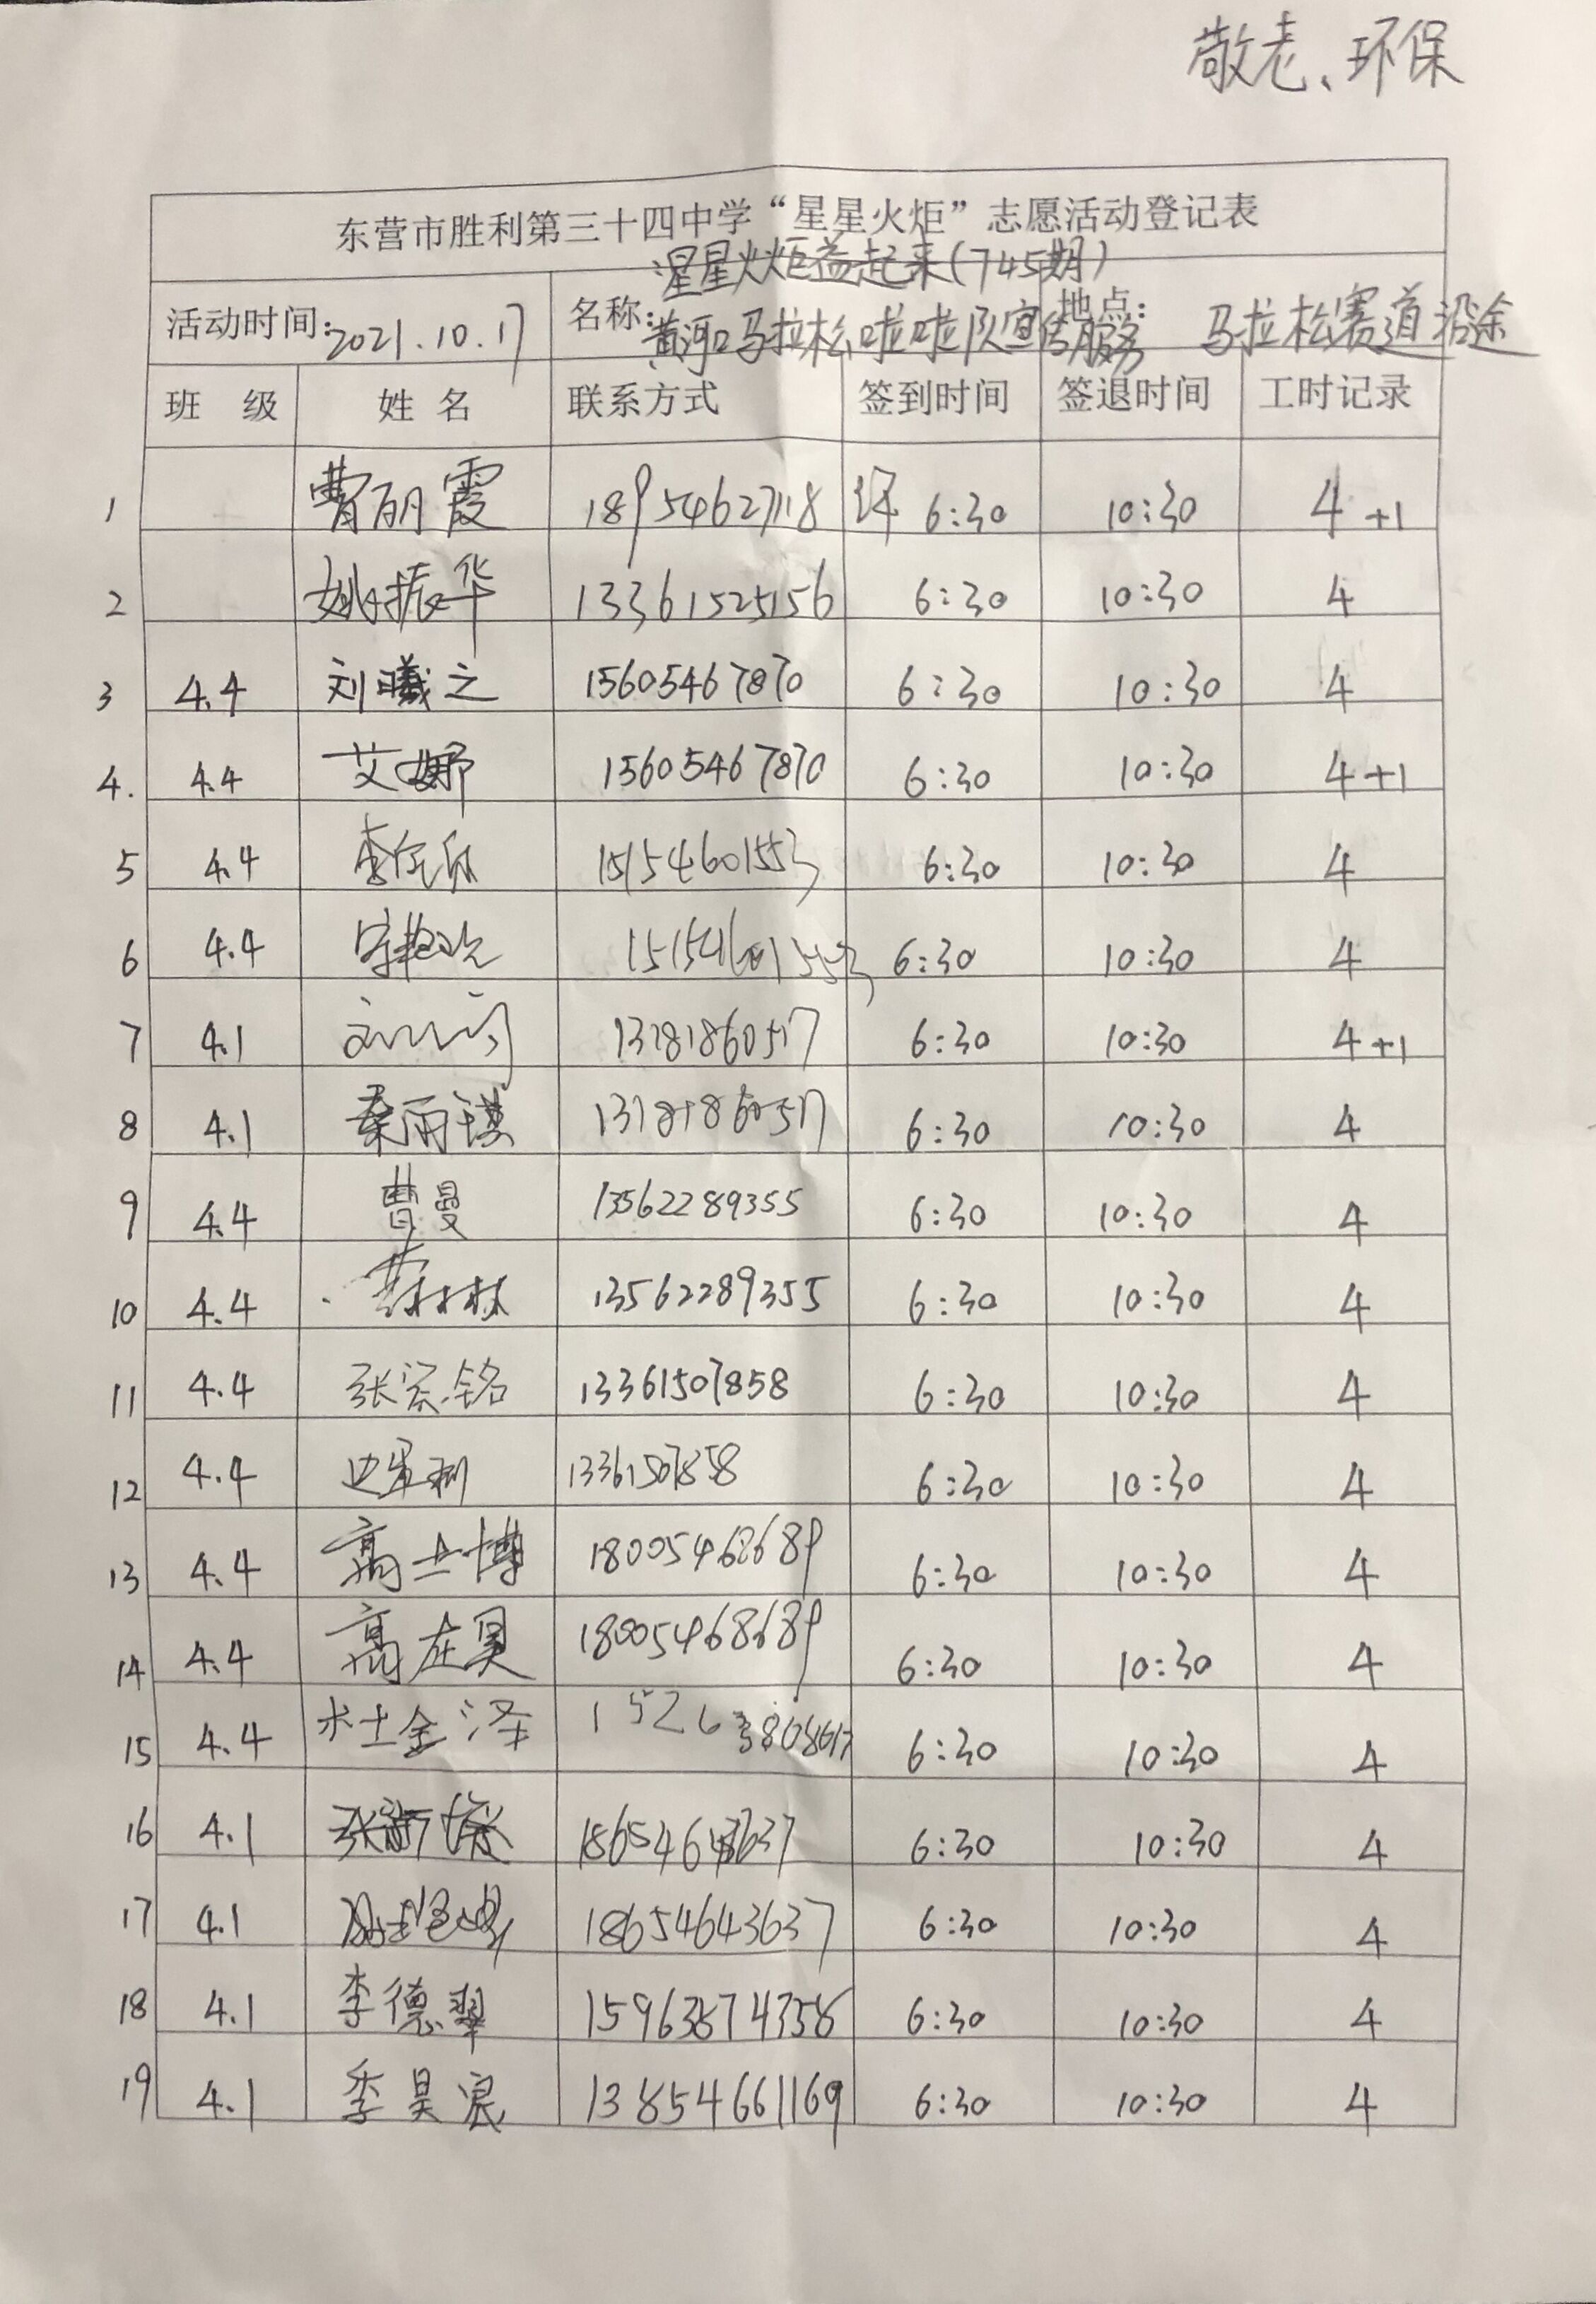 敬老、环保
东营市胜利第三十四中学“星星火炬”志愿活动登记表
星星火炬益起来(745期)
活动时间:2021.10.17 名称:黄河口马拉松啦啦队宣传服务 地点: 马拉松赛道沿途
班 级 姓 名 联系方式 签到时间 签退时间 工时记录
1 曹丽霞 18954627118 6:30 10:30 4 +1
2 姚振华 13361525156 6:30 10:30 4
3 4.4 刘曦之 15605467870 6:30 10:30 4
4. 4.4 艾娜 15605467870 6:30 10:30 4+1
5 4.4 15154601553 6:30 10:30 4
6 4.4 15154601553 6:30 10:30 4
7 4.1 13181860517 6:30 10:30 4+1
8 4.1 秦雨祺 13181860517 6:30 10:30 4
9 4.4 曹曼 13562289355 6:30 10:30 4
10 4.4 13562289355 6:30 10:30 4
11 4.4 13361507858 6:30 10:30 4
12 4.4 13361507858 6:30 10:30 4
13 4.4 高士博 18005468689 6:30 10:30 4
14 4.4 高在昊 18005468689 6:30 10:30 4
15 4.4 杜金泽 6:30 10:30 4
16 4.1 18654643637 6:30 10:30 4
17 4.1 18654643637 6:30 10:30 4
18 4.1 李德翠 6:30 10:30 4
19 4.1 季昊宸 13854661169 6:30 10:30 4